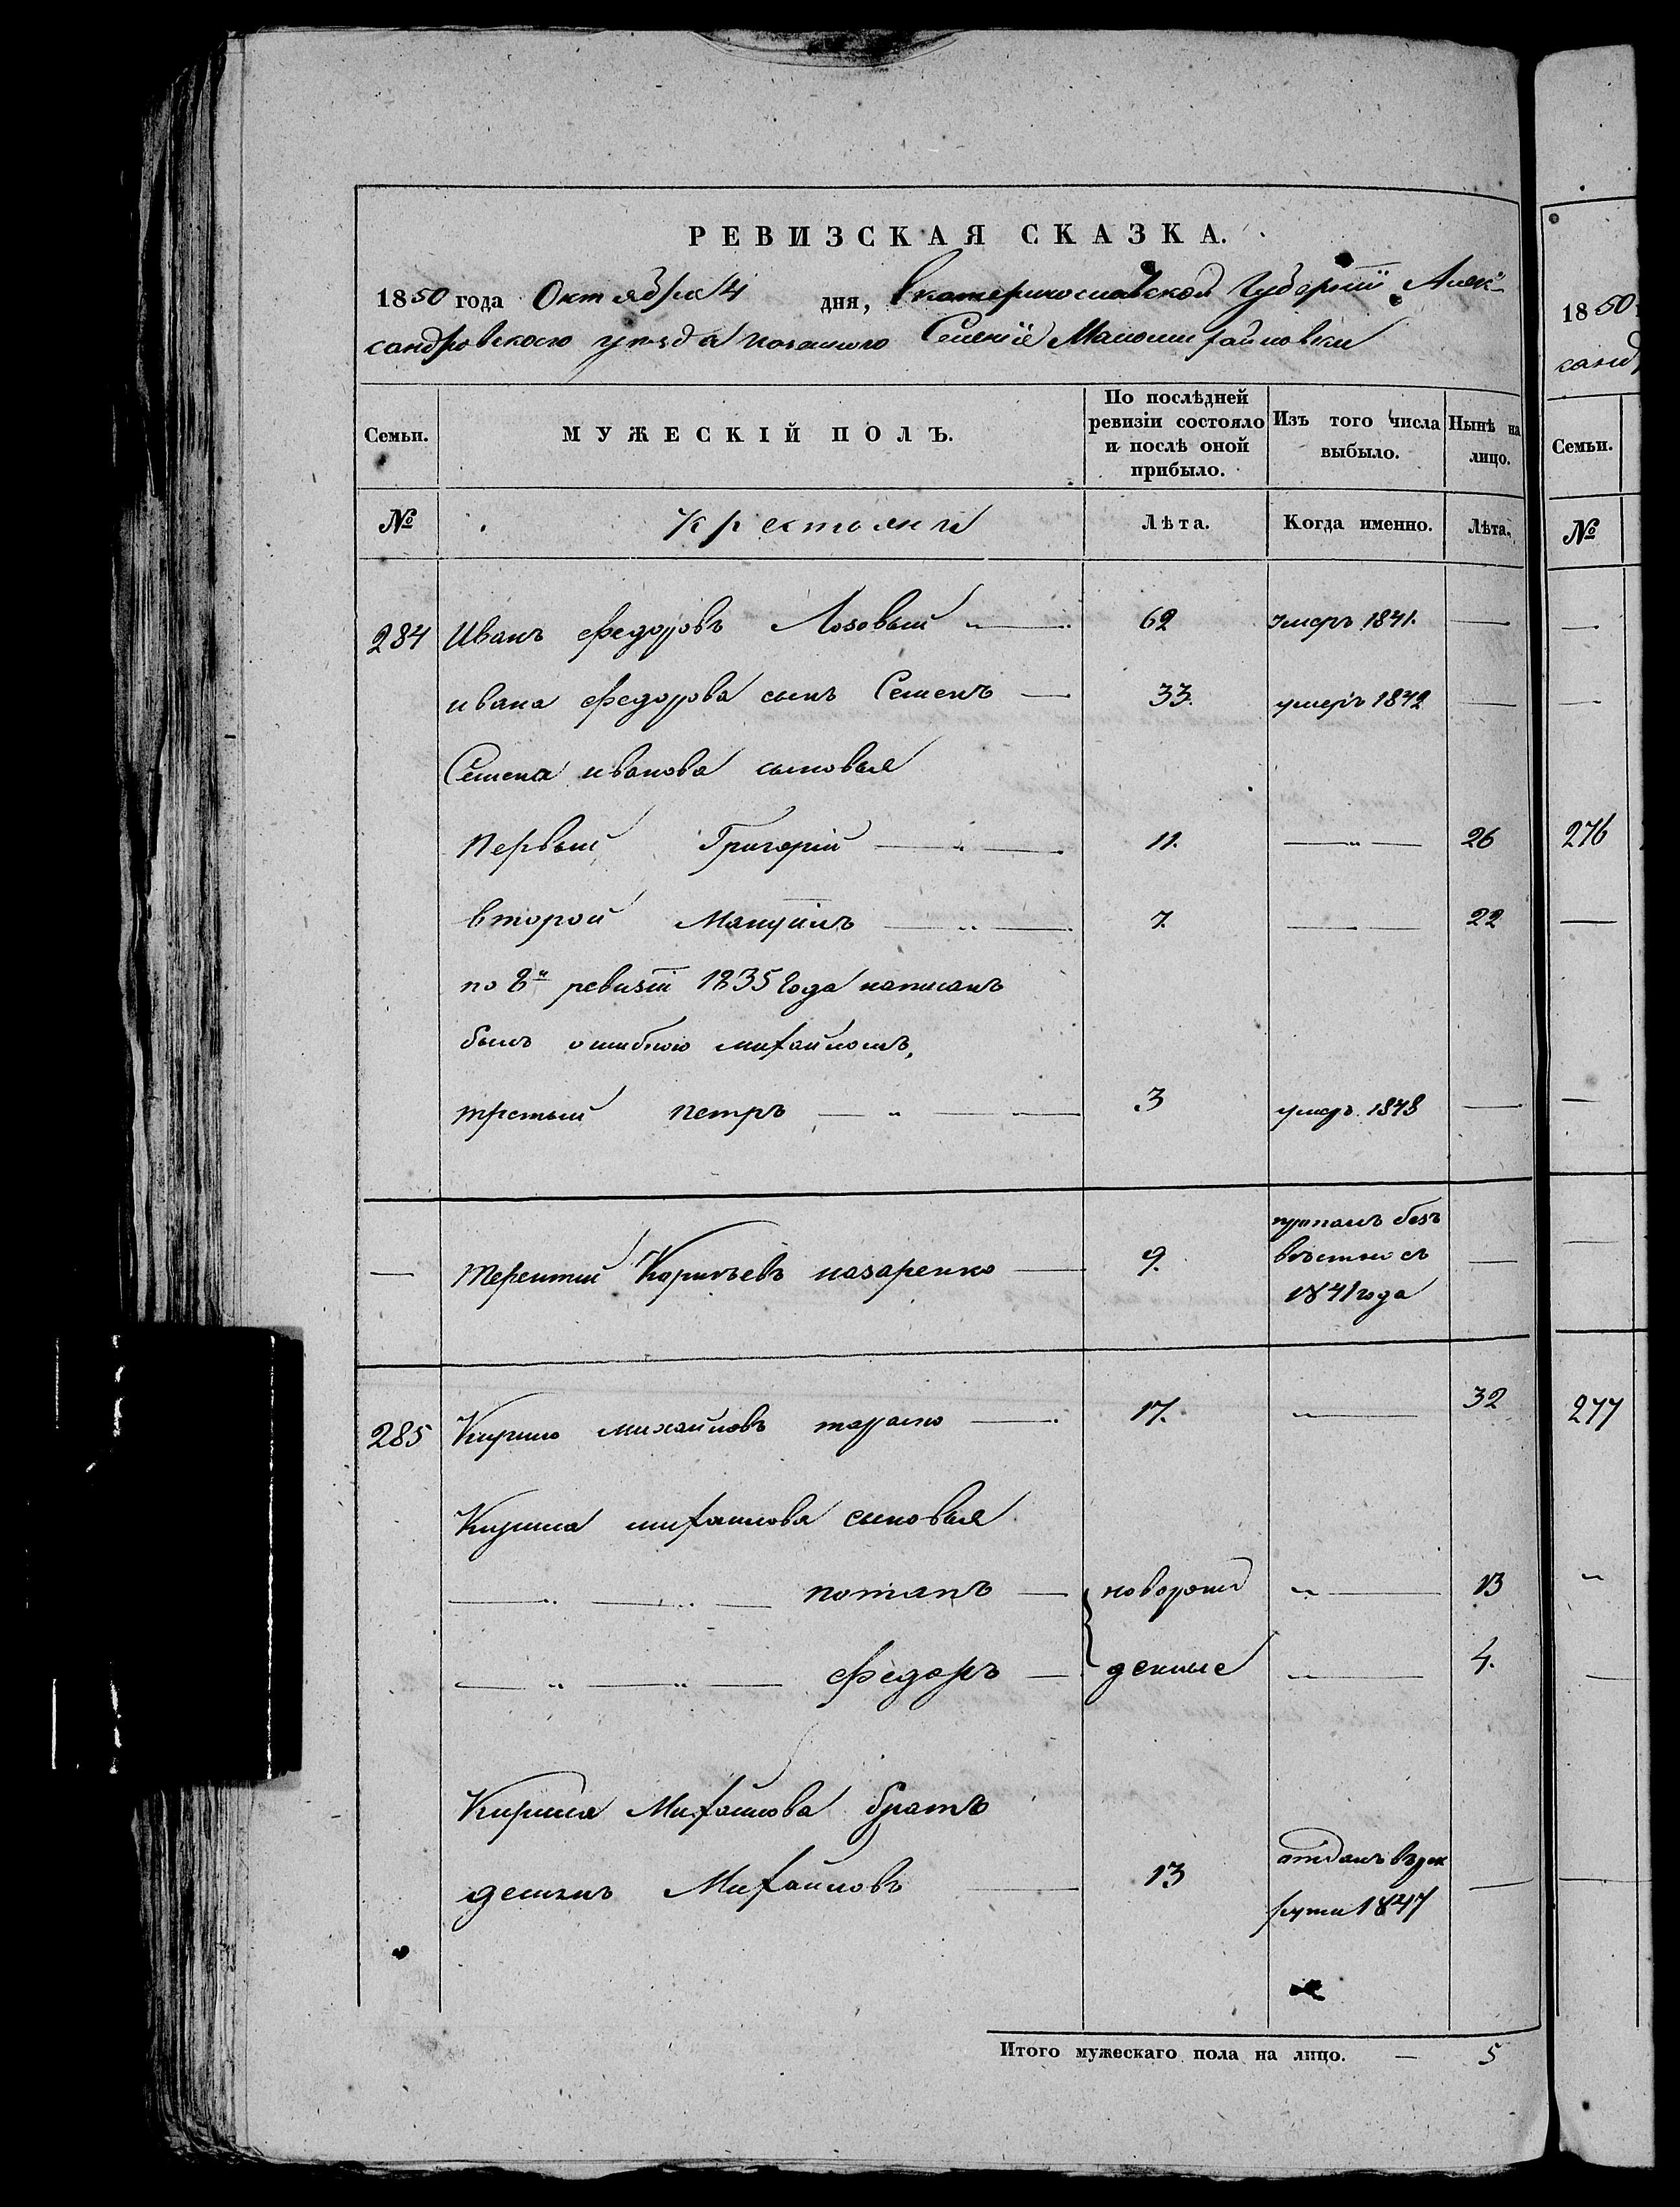 РЕВИЗСКАЯ СКАЗКА.
1850 года Октября 4 дня, Екатеринославской Губернiи Алек-
сандровского уѣзда казенного Селенiе Маломихайловки
Семьи. МУЖЕСКIЙ ПОЛЪ. По послѣдней ревизiи состояло и послѣ оной прибыло. Изъ того числа выбыло. Нынѣ на лицо.
№ Крестьяни Лѣта. Когда именно. Лѣта.
284 Иванъ Федоровъ Лозовый 62 умеръ 1841.
ивана Федорова сынъ Семенъ 33. умеръ 1842
Семена иванова сыновья
Первый Григорiй 11. 26
второй Мануилъ 7. 22
по 8й ревизiи 1835 Года написанъ
былъ ошибкою михайломъ,
третый петръ 3 умеръ 1848
пропалъ безъ
Терентий назаренко 9. вѣсти съ
1841 года
285 Кирило михайловъ 17. 32
Кирила михайлова сыновья
потапъ новорож 13
Федоръ денные 4.
Кирила Михайлова братъ
демянъ Михайловъ 13 отданъ въ рек
руты 1847
Итого мужескаго пола на лицо. — 5
1850
санд
Семьи.
№
276
277